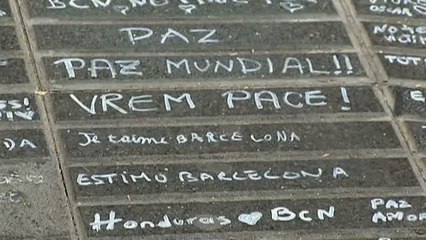 BCN NO
PAZ
PAZ MUNDIAL!!
VREM PACE!
Je t'aime BARCELONA
DA
ESTIMO BARCELONA
Honduras ♥ BCN PAZ
AMOR